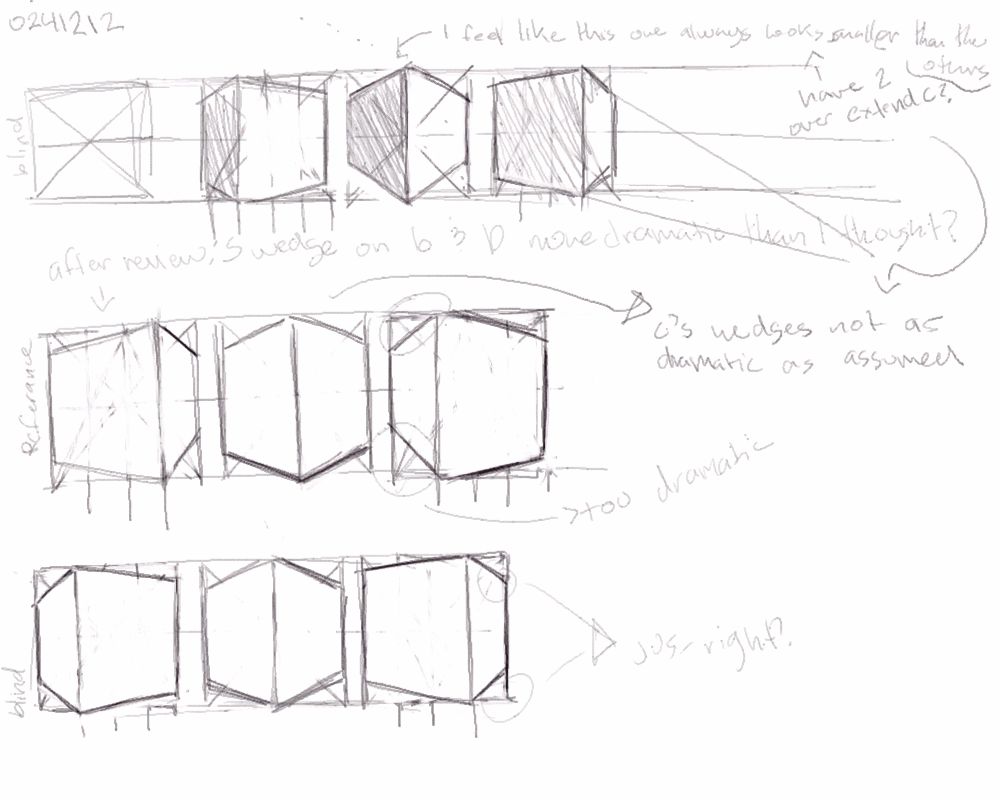 0241212
I feel like this one always looks smaller than the
others
have 2
over extend c?
blind
after review, 's wedge on b & D more dramatic than I thought?
Referance
c's wedges not as
dramatic as assumed
too dramatic
blind
jus-right?